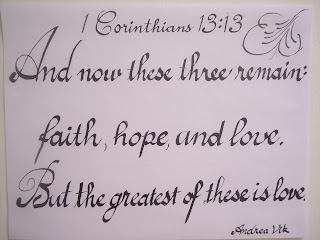 1 Corinthians 13:13
And now these three remain:
faith, hope, and love.
But the greatest of these is love.
Andrea Vtk